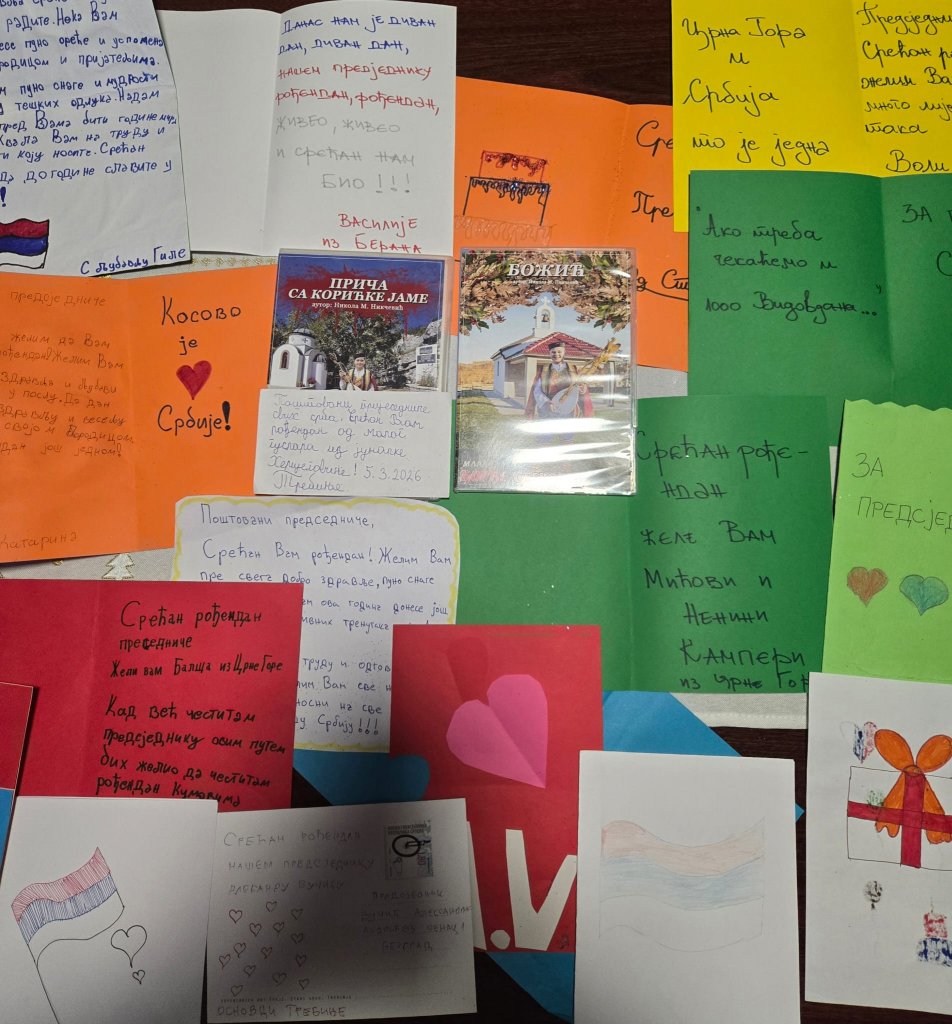 радите. Нека Вам
пуно среће и успомена
породицом и пријатељима.
пуно снаге и мудрости
тешких одлука. Надам
пред Вама бити године мира
Хвала Вам на труду и
коју носите. Срећан
да догодине славите у
!
С љубављу Гиле
Данас нам је диван
дан, диван дан,
нашем предједнику
рођендан, рођендан,
живео, живео
и срећан нам
био !!!
Василије
из Берана
Црна Гора
и
Србија
то је једна
Срећан
желим
много
Воли
"Ако треба
чекаћемо и
1000 Видовдана..."
ЗА
предсједниче
желим да Вам
рођендан! Желим Вам
здравља и љубави
у послу. Да дан
здрављу и весељу
својом породицом
још једном!
Катарина
Косово
је
Србије!
ПРИЧА
СА КОРИЋКЕ ЈАМЕ
аутор: Никола М. Никчевић
БОЖИЋ
Поштовани председниче
свих срба, срећан Вам
рођендан од малог
гуслара из јуначке
Херцеговине! 5.3.2026
Требиње
Срећан рође-
ндан
желе Вам
Мићови и
Ненини
Кампери
из Црне Гор
ЗА
ПРЕДСЈЕД
Поштовани председниче,
Срећан Вам рођендан! Желим Вам
пре свега добро здравље, пуно снаге
ова година донесе још
тренутака
труду и
Вам све
на све
Србију!!!
Срећан рођендан
преседниче
Жели вам Балша из Црне Горе
Кад већ честитам
предсједнику овим путем
бих желио да честитам
рођендан Кумовима
.V
Срећан рођендан
нашем предсједнику
Вучићу
Вучић Александар
Београд
основци Требиње